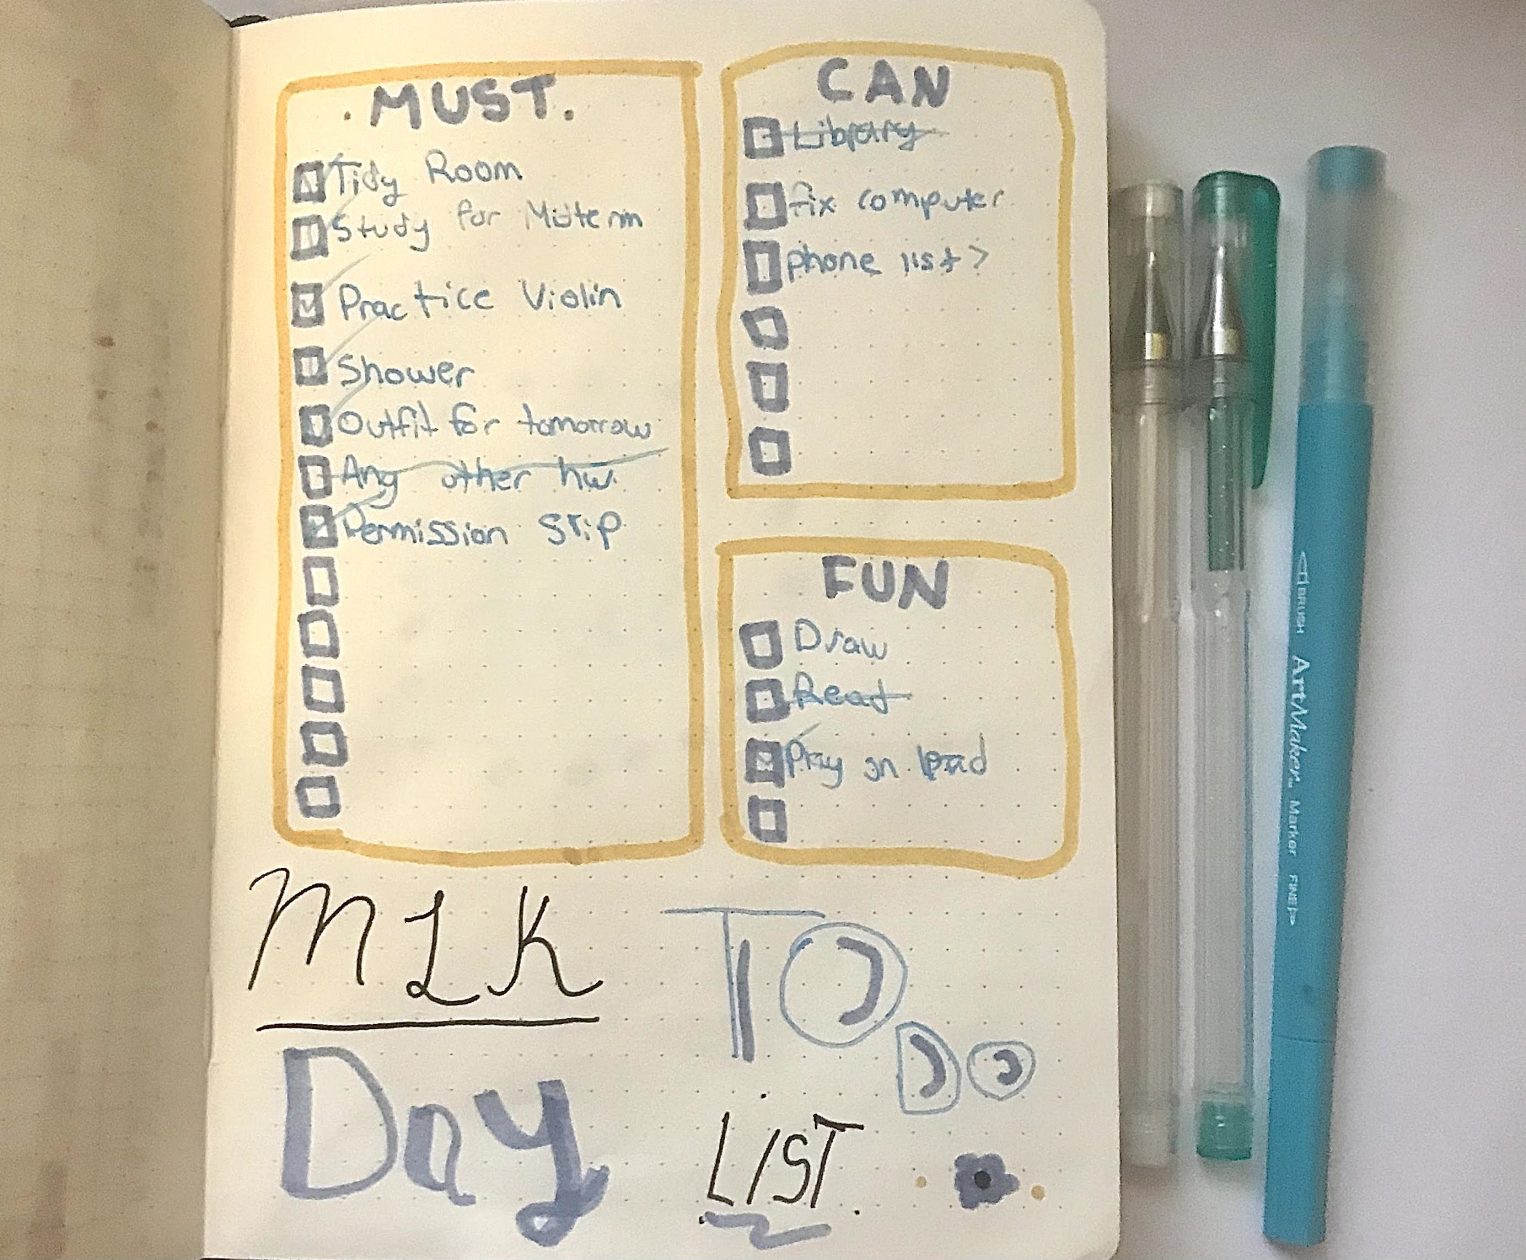 . MUST.
Tidy Room
Study for Midterm
Practice Violin
Shower
Outfit for tomorrow
Any other hw.
Permission Slip
CAN
Library
fix computer
phone list?
FUN
Draw
Read
Play on Ipad
MLK
Day
TO
DO
LIST.
BRUSH ArtMaker Marker FINE